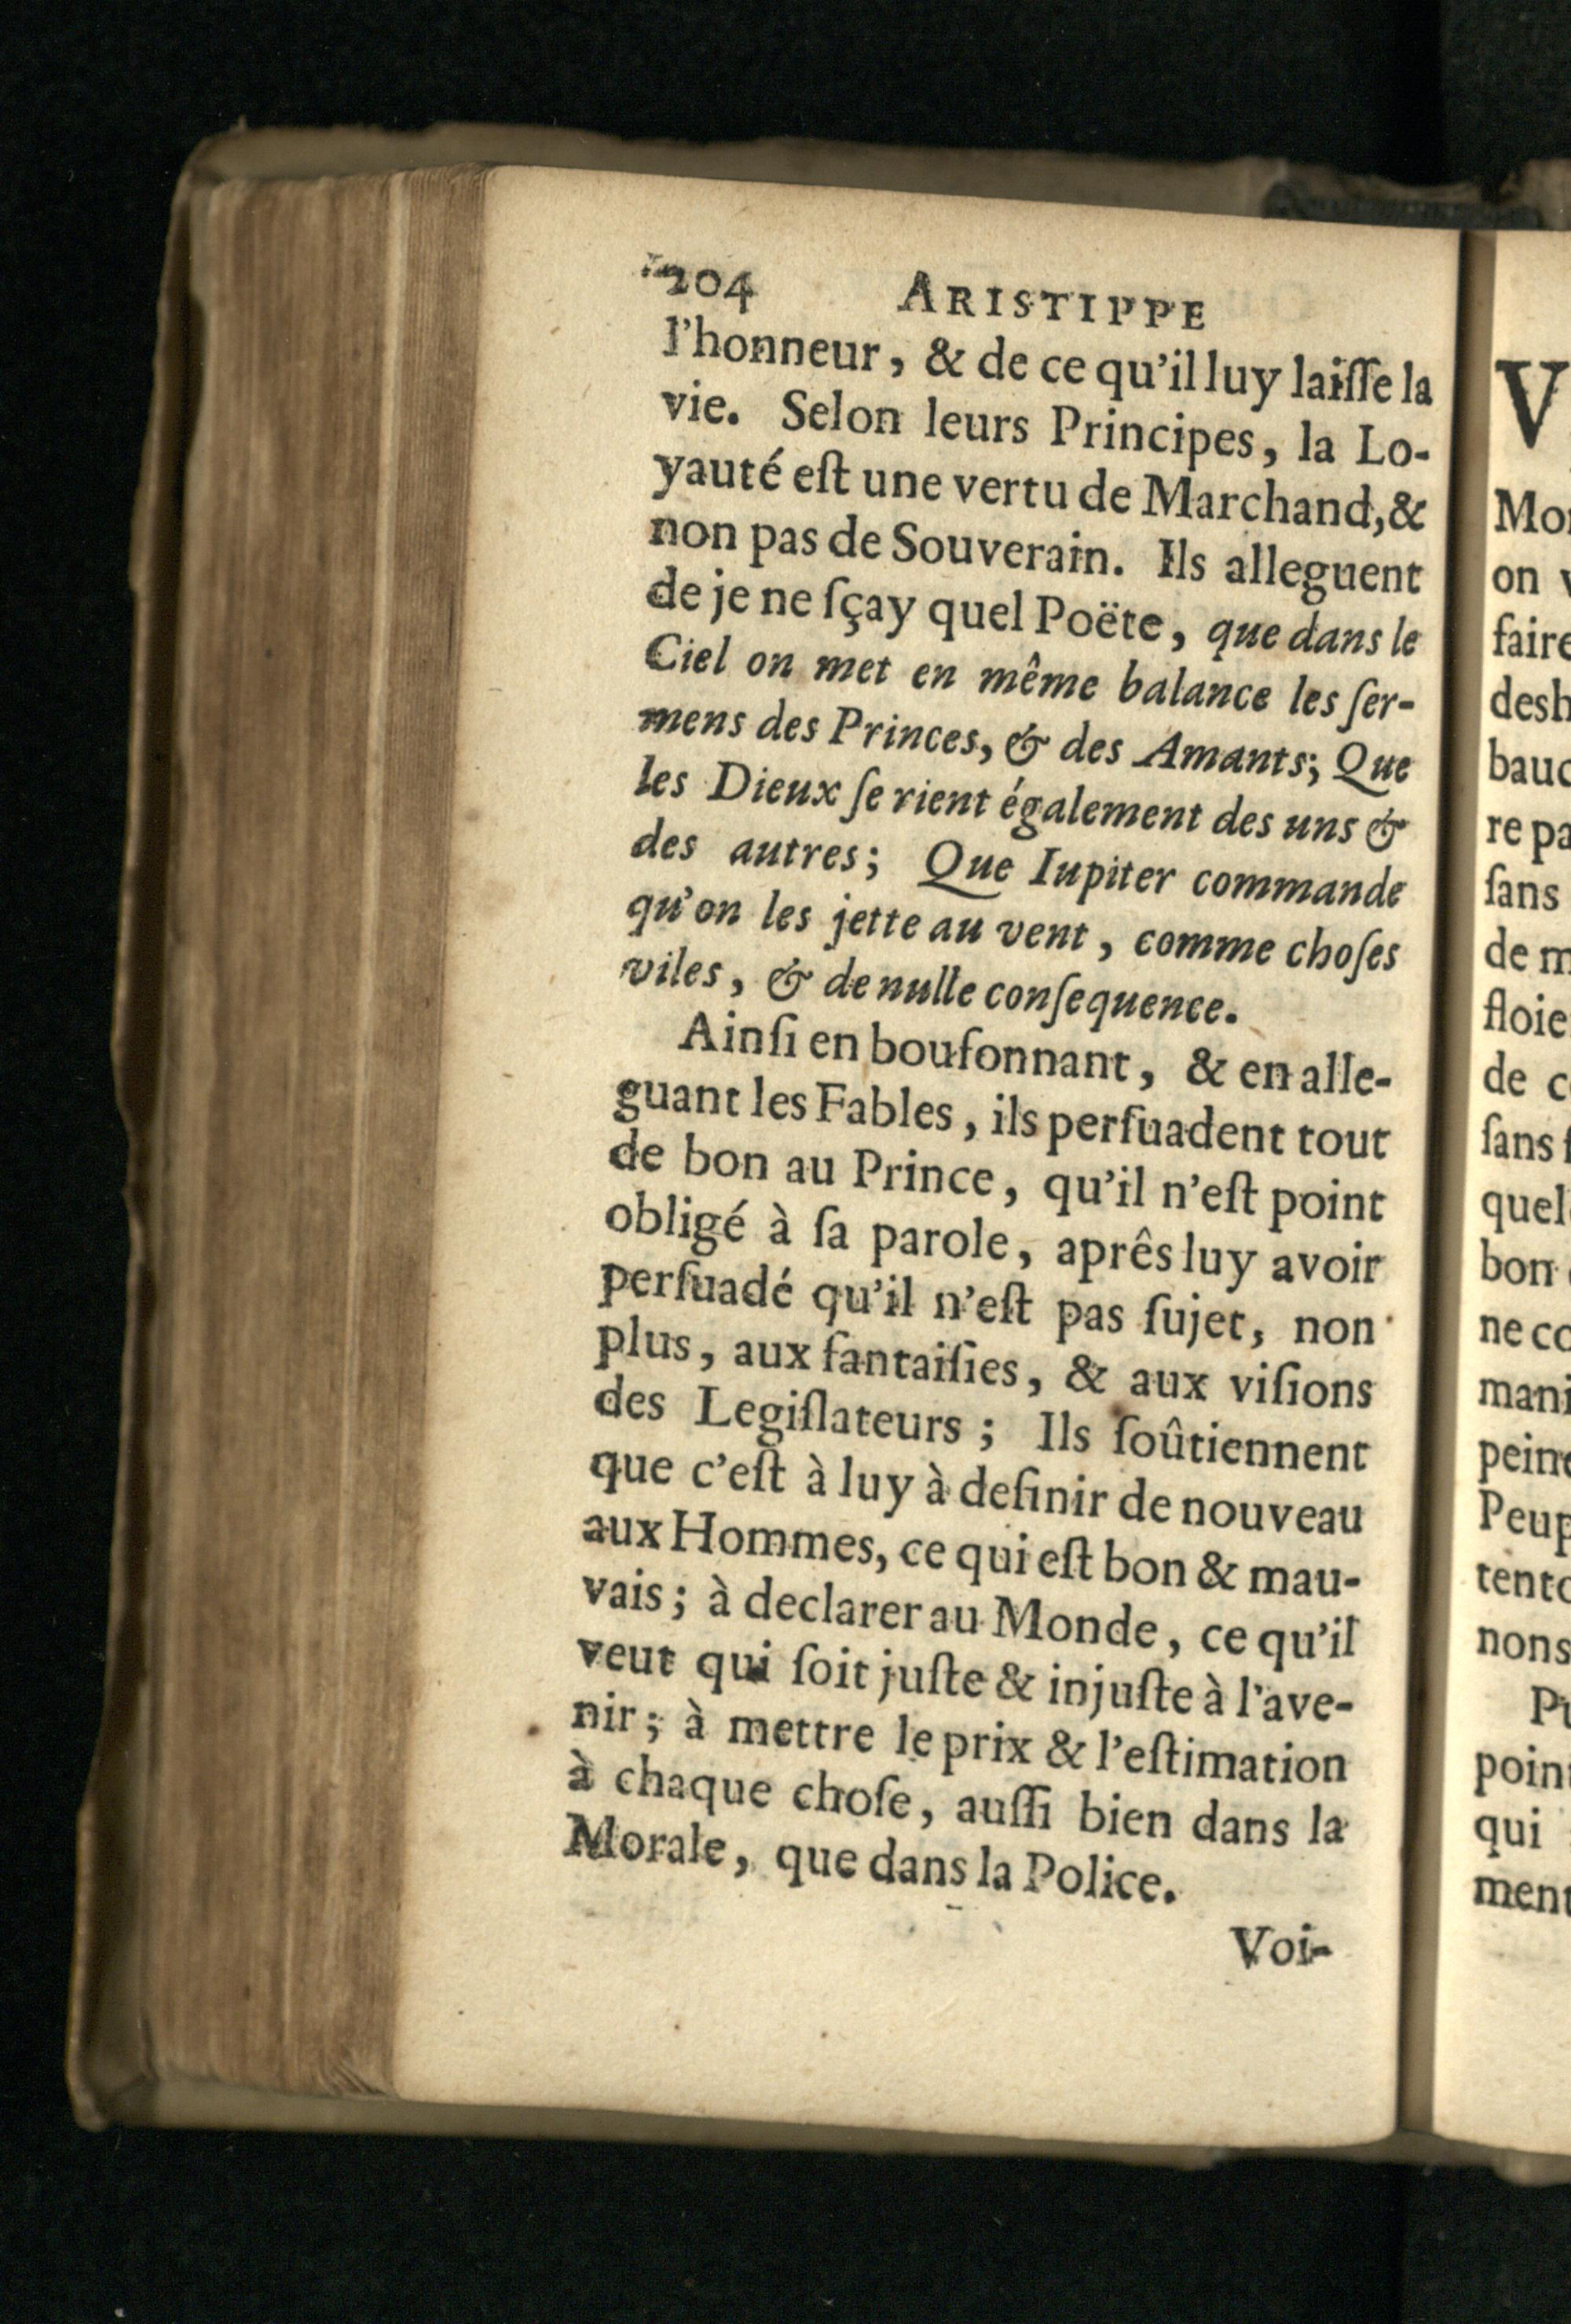 204 ARISTIPPE
l'honneur, & de ce qu'il luy laiſſe la
vie. Selon leurs Principes, la Lo-
yauté eſt une vertu de Marchand, &
non pas de Souverain. Ils alleguent
de je ne ſçay quel Poëte, que dans le
Ciel on met en même balance les ſer-
mens des Princes, & des Amants; Que
les Dieux ſe rient également des uns &
des autres; Que Iupiter commande
qu'on les jette au vent, comme choſes
viles, & de nulle conſequence.
Ainſi en boufonnant, & en alle-
guant les Fables, ils perſuadent tout
de bon au Prince, qu'il n'eſt point
obligé à ſa parole, aprês luy avoir
perſuadé qu'il n'eſt pas ſujet, non
plus, aux fantaiſies, & aux viſions
des Legiſlateurs; Ils ſoûtiennent
que c'eſt à luy à definir de nouveau
aux Hommes, ce qui eſt bon & mau-
vais; à declarer au Monde, ce qu'il
veut qui ſoit juſte & injuſte à l'ave-
nir; à mettre le prix & l'eſtimation
à chaque choſe, auſſi bien dans la
Morale, que dans la Police.
Voi-
V
Mo
on
faire
desh
bauc
re pa
ſans
de m
ſloie
de c
ſans
quel
bon
ne co
mani
peine
Peup
tento
nons
Pu
point
qui
ment